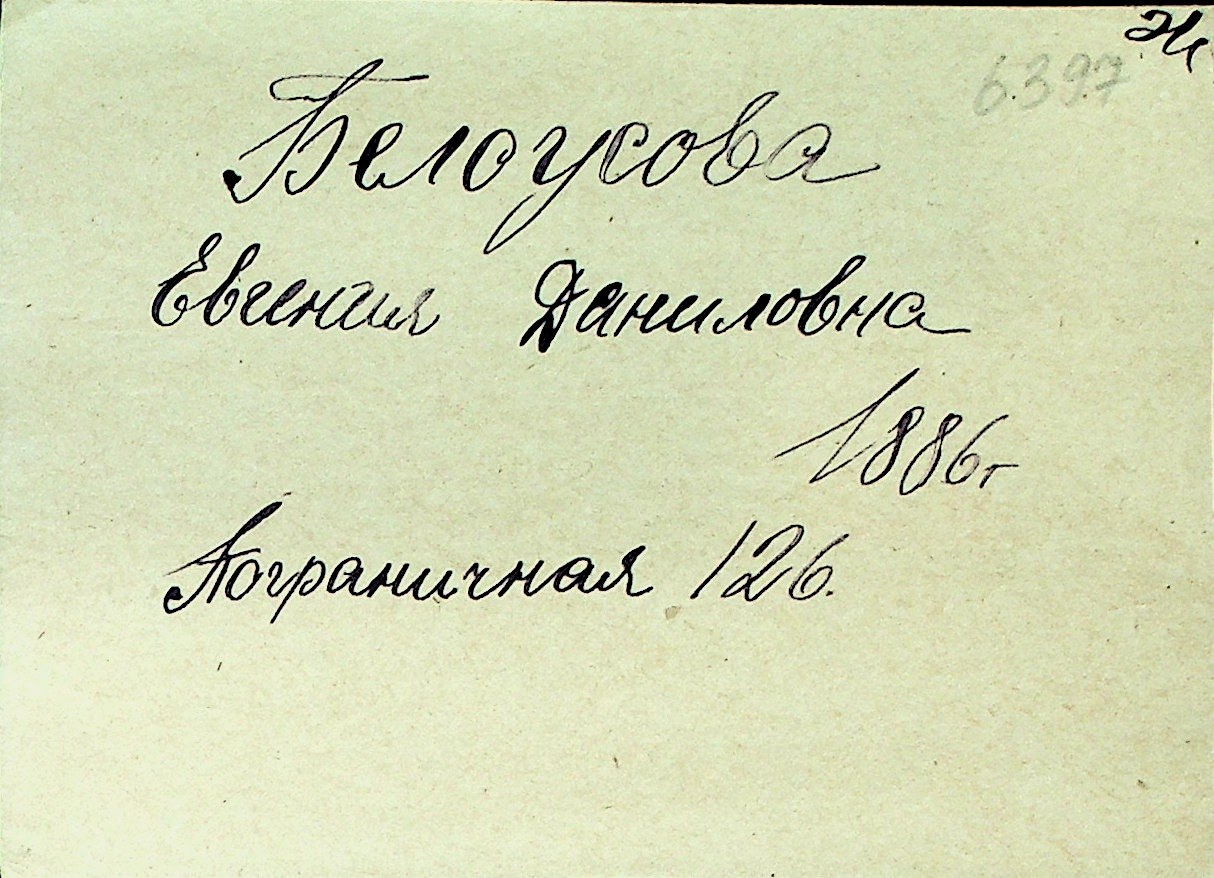 Ж
6397
Белоусова
Евгения Даниловна
1886г
Пограничная 126.